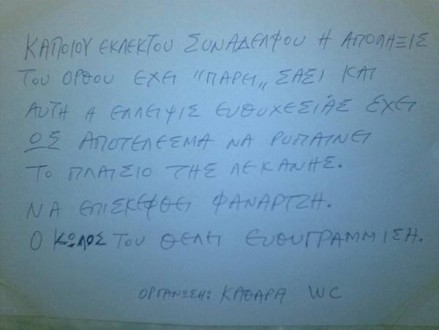 ΚΑΠΟΙΟΥ ΕΚΛΕΚΤΟΥ ΣΥΝΑΔΕΛΦΟΥ Η ΑΠΟΛΗΞΙΣ
ΤΟΥ ΟΡΘΟΥ ΕΧΕΙ "ΠΑΡΕΙ„ ΣΑΣΙ ΚΑΙ
ΑΥΤΗ Η ΕΛΛΕΙΨΙΣ ΕΥΘΥΧΕΣΙΑΣ ΕΧΕΙ
ΟΣ ΑΠΟΤΕΛΕΣΜΑ ΝΑ ΡΥΠΑΙΝΕΙ
ΤΟ ΠΛΑΙΣΙΟ ΤΗΣ ΛΕΚΑΝΗΣ.
ΝΑ ΕΠΙΣΚΕΦΘΕΙ ΦΑΝΑΡΤΖΗ.
Ο ΚΩΛΟΣ ΤΟΥ ΘΕΛΕΙ ΕΥΘΥΓΡΑΜΜΙΣΗ.
ΟΡΓΑΝΩΣΗ: ΚΑΘΑΡΑ WC